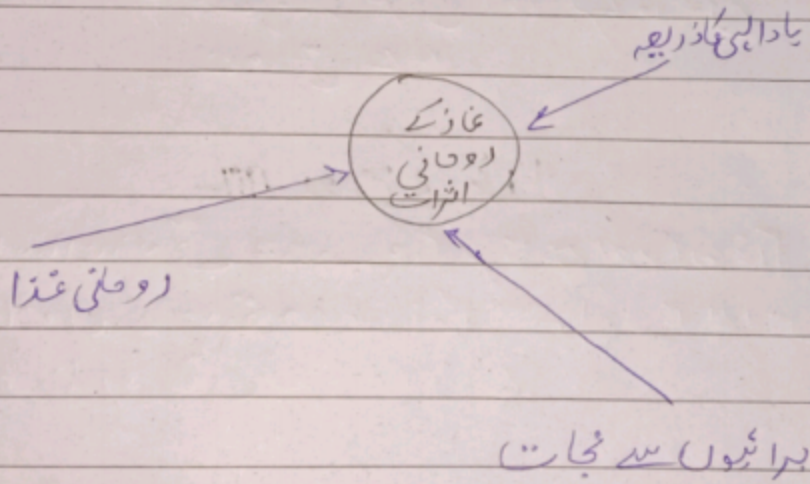 یاد الہی کا ذریعہ
نماز کے
روحانی
اثرات
روحانی غذا
برائیوں سے نجات